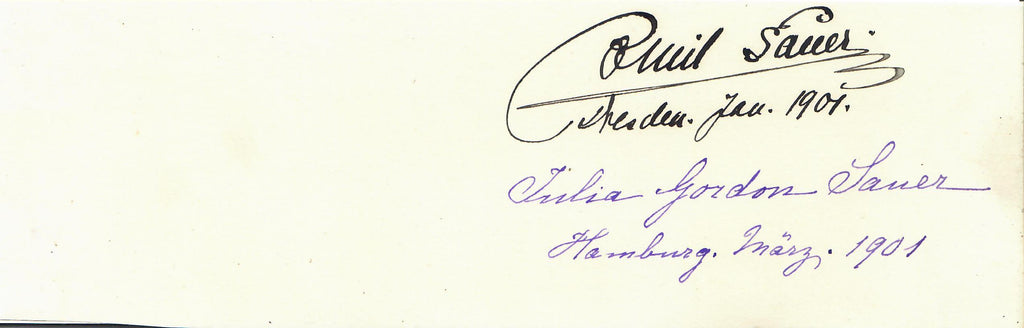 Emil Sauer.
Dresden. Jan. 1901.
Julia Gordon Sauer
Hamburg. März. 1901